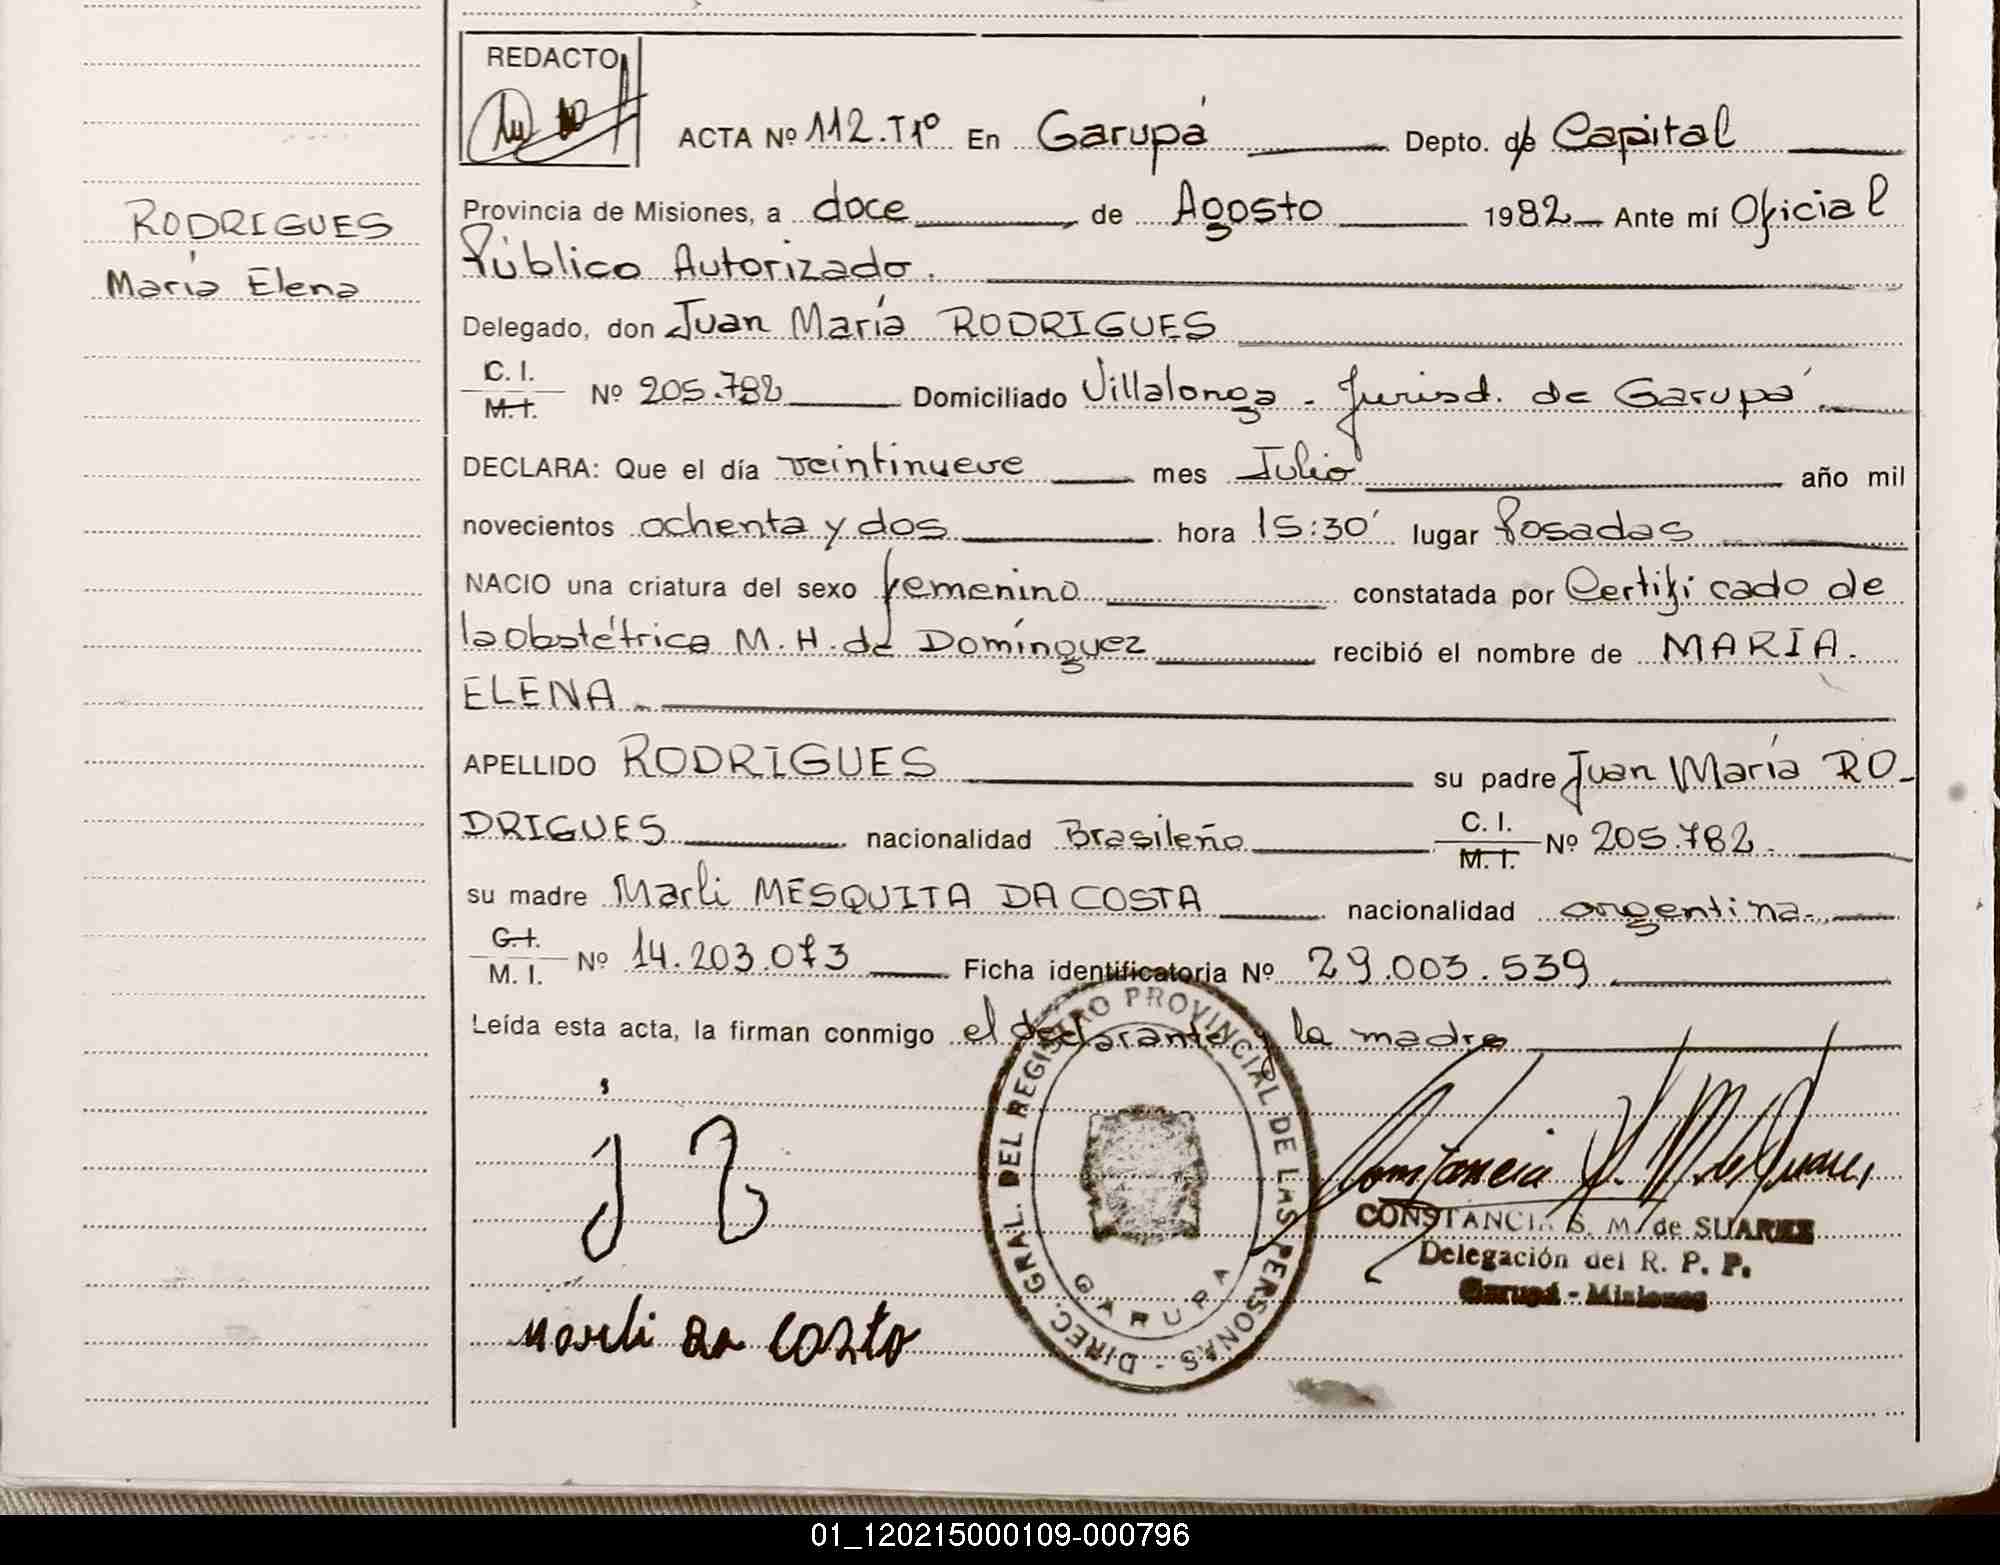 REDACTO
ACTA Nº 112.T1º En Garupá Depto. de Capital
RODRIGUES
María Elena
Provincia de Misiones, a doce de Agosto 1982 Ante mí Oficial
Público Autorizado.
Delegado, don Juan María RODRIGUES
C. I.
M. I.
Nº 205.782 Domiciliado Villalonga - Jurisd. de Garupá.
DECLARA: Que el día veintinueve mes Julio año mil
novecientos ochenta y dos hora 15:30' lugar Posadas
NACIO una criatura del sexo femenino constatada por Certificado de
la Obstétrica M. H. de Domínguez recibió el nombre de MARIA
ELENA
APELLIDO RODRIGUES su padre Juan María RO-
DRIGUES nacionalidad Brasileño C. I.
M. I.
Nº 205.782.
su madre Marli MESQUITA DA COSTA nacionalidad argentina
C. I.
M. I.
Nº 14.203.073 Ficha identificatoria Nº 29.003.539
Leída esta acta, la firman conmigo el declarante y la madre
DIREC. GRAL. DEL REGISTRO PROVINCIAL DE LAS PERSONAS -
GARUPA
j R
marli da costa
CONSTANCIA S. M. de SUAREZ
Delegación del R. P. P.
Garupá - Misiones
01_120215000109-000796